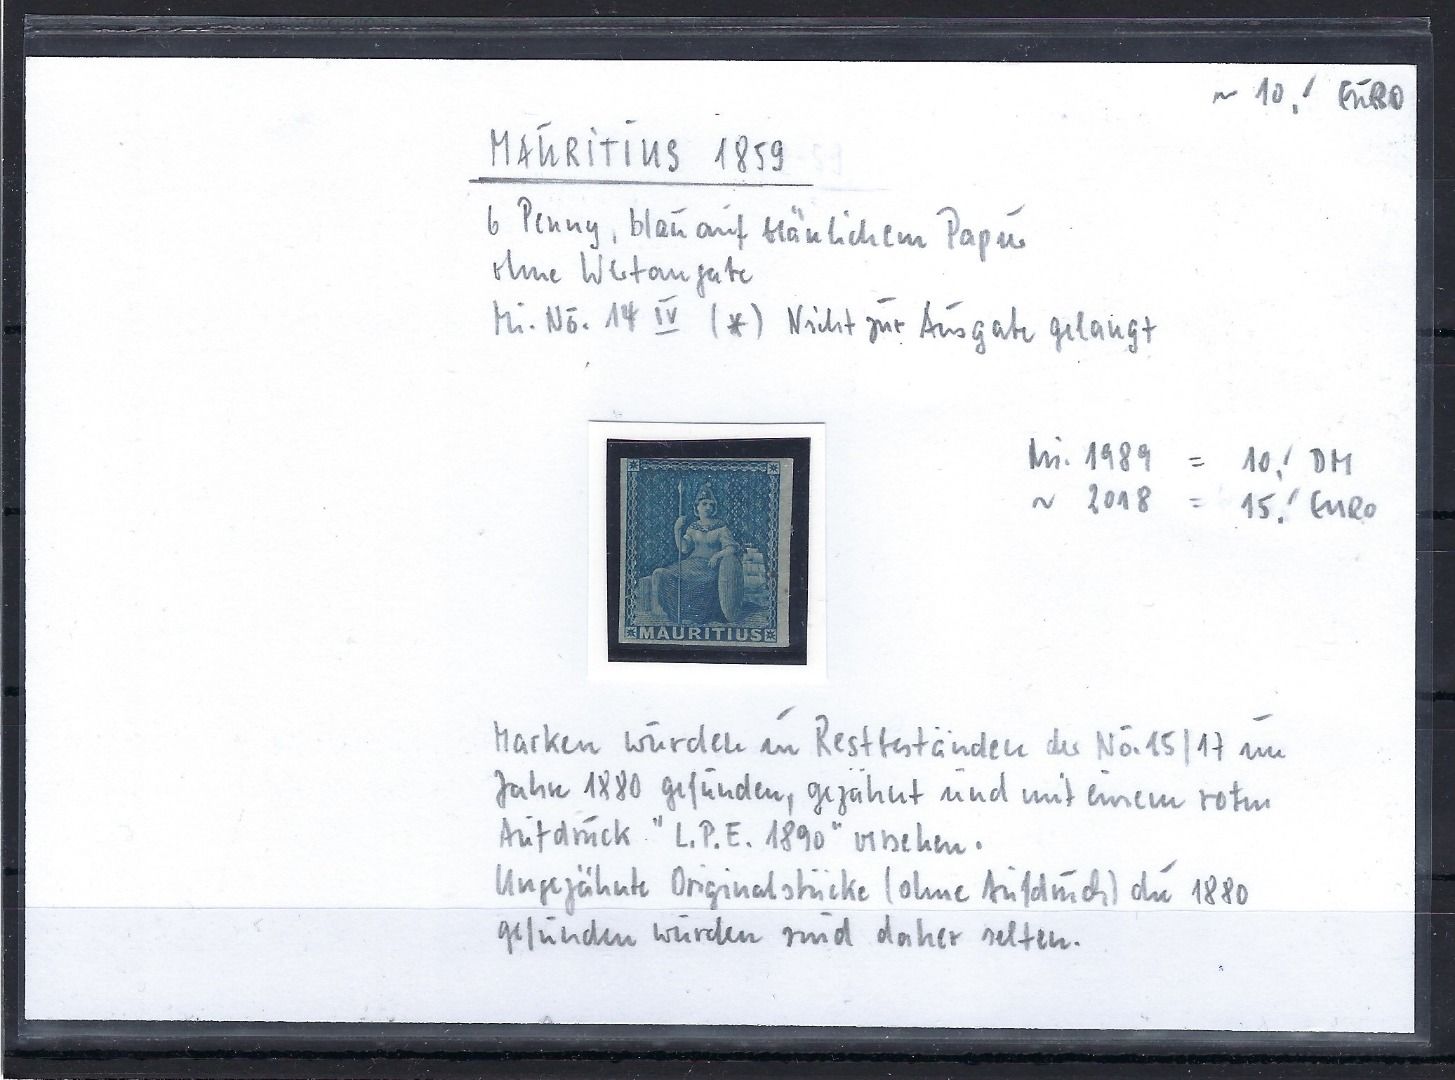 ~ 10,! EURO
MAURITIUS 1859
6 Penny, blau auf bläulichem Papier
ohne Wertangabe
Mi. No. 14 IV (*) Nicht zur Ausgabe gelangt
Mi. 1989 = 10,! DM
~ 2018 = 15,! EURO
MAURITIUS
Marken wurden in Restbeständen der No. 15/17 im
Jahre 1880 gefunden, gezähnt und mit einem roten
Aufdruck "L.P.E. 1890" versehen.
Ungezähnte Originalstücke (ohne Aufdruck) die 1880
gefunden wurden sind daher selten.